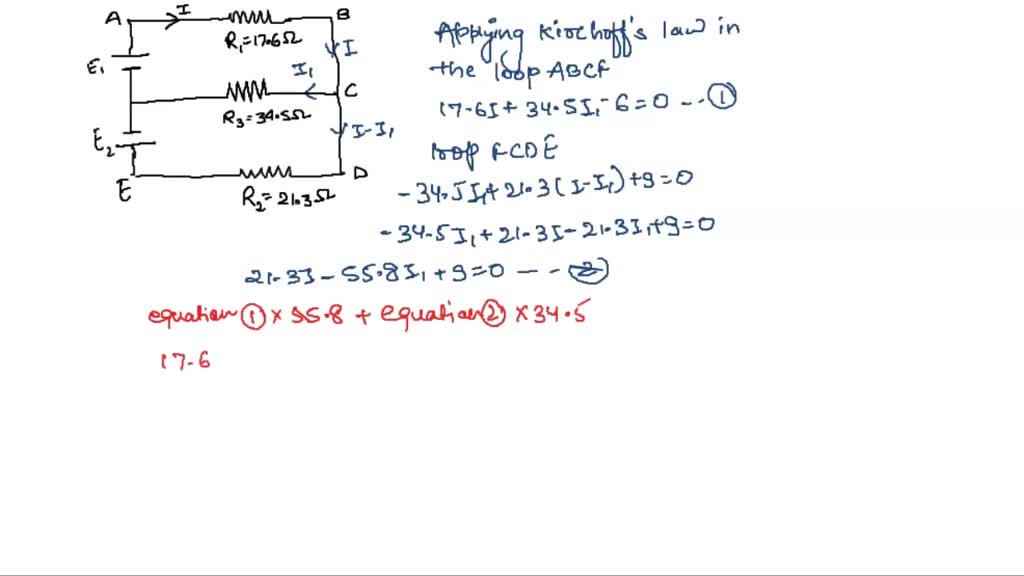 A I B
R₁=17.6Ω
I
E₁
I₁
C
R₃=34.5Ω
I-I₁
E₂
D
E
R₂=21.3Ω
Applying Kirchoff's law in
the loop ABCF
17.6I + 34.5I₁ - 6 = 0 -- ①
loop FCDE
-34.5I₁ + 21.3(I-I₁) + 9 = 0
-34.5I₁ + 21.3I - 21.3I₁ + 9 = 0
21.3I - 55.8I₁ + 9 = 0 -- - ②
equation ① × 55.8 + equation ② × 34.5
17.6